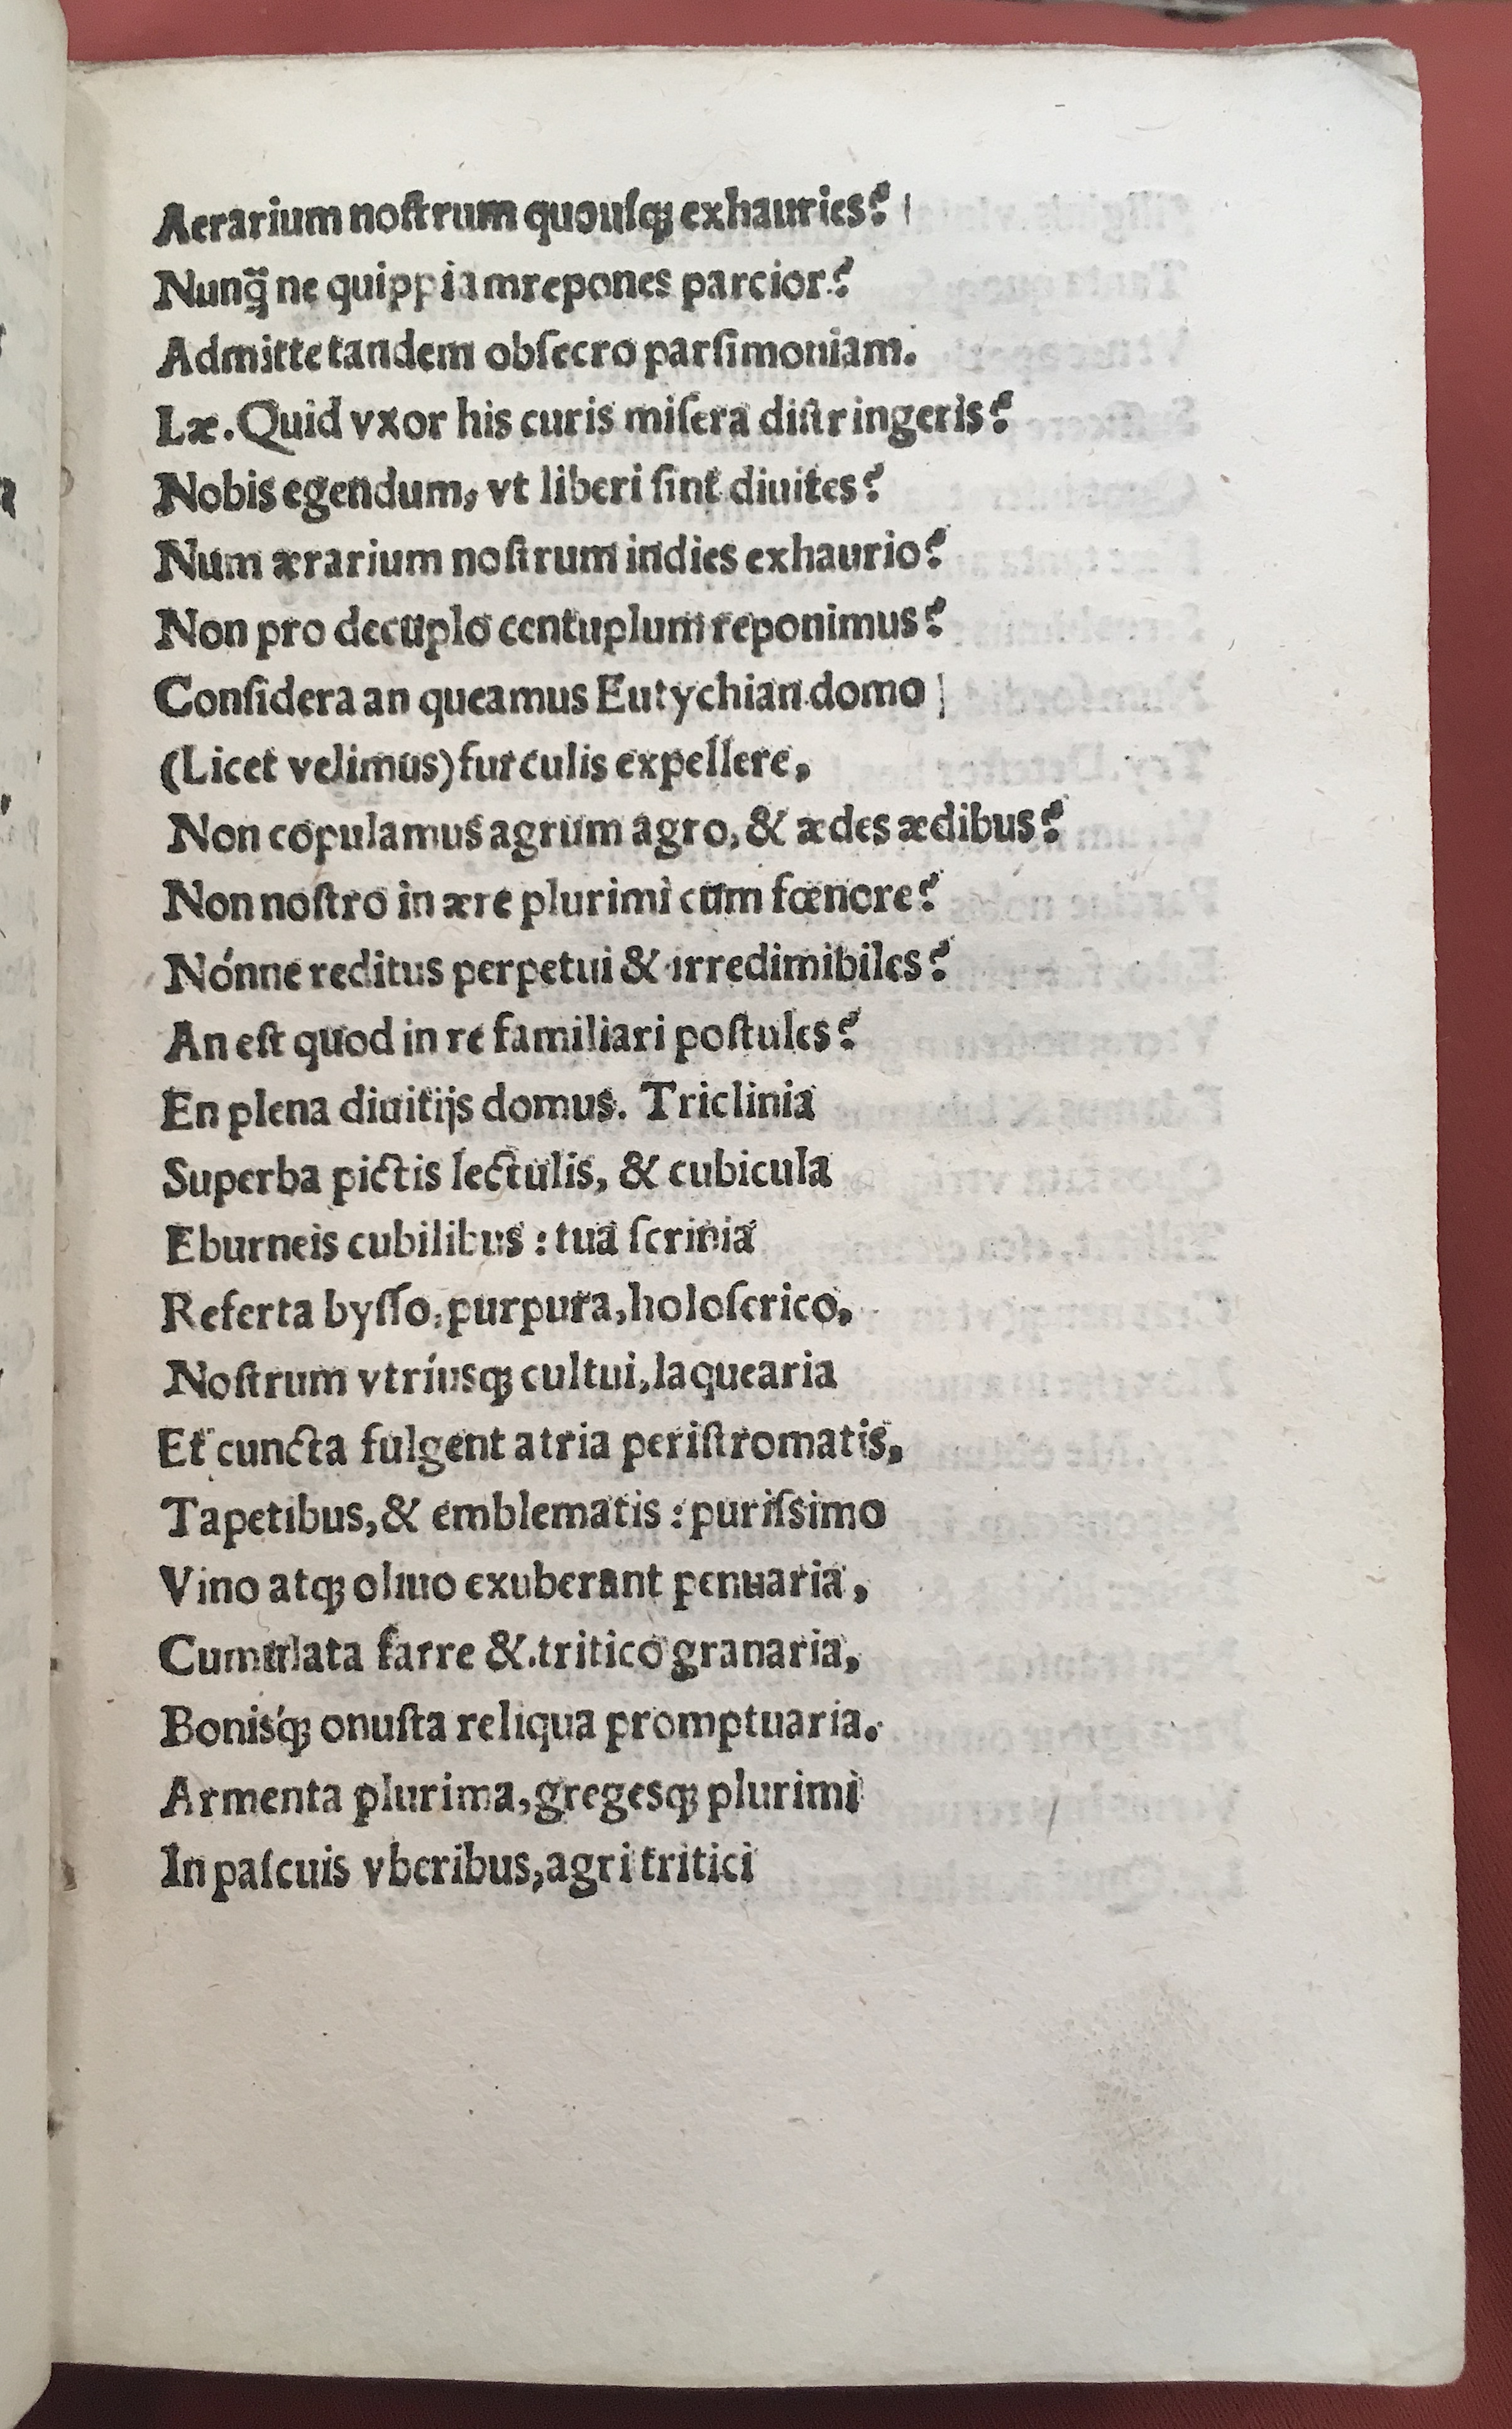 Aerarium noſtrum quouſqꝫ exhauries?
Nunq̃ ne quippiam repones parcior?
Admitte tandem obſecro parſimoniam.
Læ. Quid vxor his curis miſera diſtringeris?
Nobis egendum, vt liberi ſint diuites?
Num ærarium noſtrum indies exhaurio?
Non pro decuplo centuplum reponimus?
Conſidera an queamus Eutychian domo
(Licet velimus) furculis expellere,
Non copulamus agrum agro, & ædes ædibus?
Non noſtro in ære plurimi cum fœnore?
Nónne reditus perpetui & irredimibiles?
An eſt quod in re familiari poſtules?
En plena diuitijs domus. Triclinia
Superba pictis lectulis, & cubicula
Eburneis cubilibus : tua ſcrinia
Referta byſſo, purpura, holoſerico,
Noſtrum vtríuſqꝫ cultui, laquearia
Et cuncta fulgent atria periſtromatis,
Tapetibus, & emblematis : puriſsimo
Vino atqꝫ oliuo exuberant penuaria,
Cumulata farre & tritico granaria,
Boniſq́ꝫ onuſta reliqua promptuaria.
Armenta plurima, gregeſqꝫ plurimi
In paſcuis vberibus, agri tritici